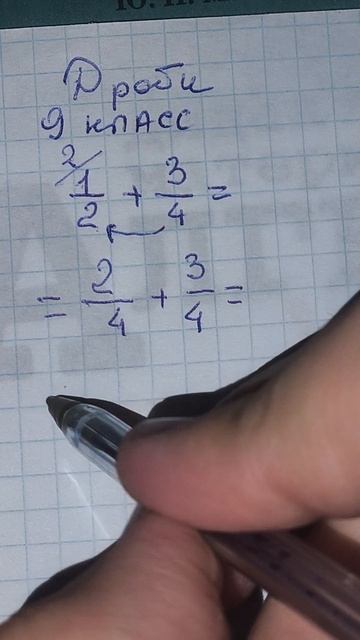 Дроби
9 класс
2/
1/2 + 3/4 =
= 2/4 + 3/4 =